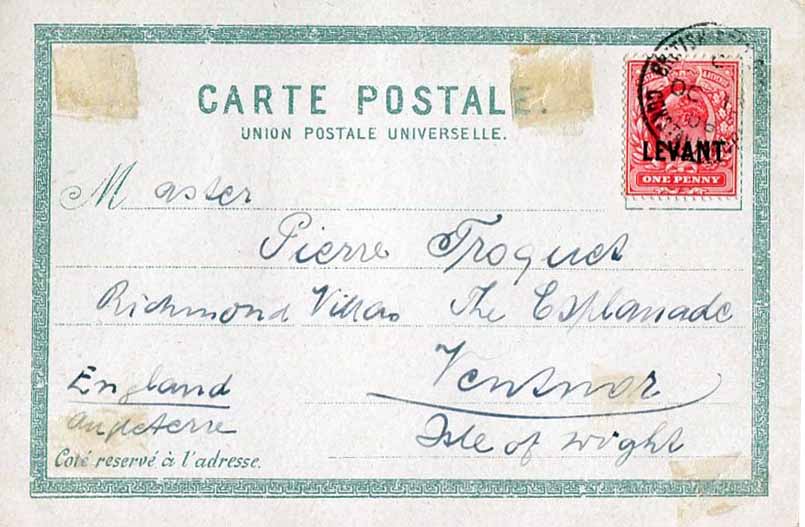 CARTE POSTALE.
UNION POSTALE UNIVERSELLE.
LEVANT
ONE PENNY
Master
Pierre Troquet
Richmond Villas The Esplanade
Ventnor
England
Angleterre
Isle of Wight
Coté reservé à l'adresse.